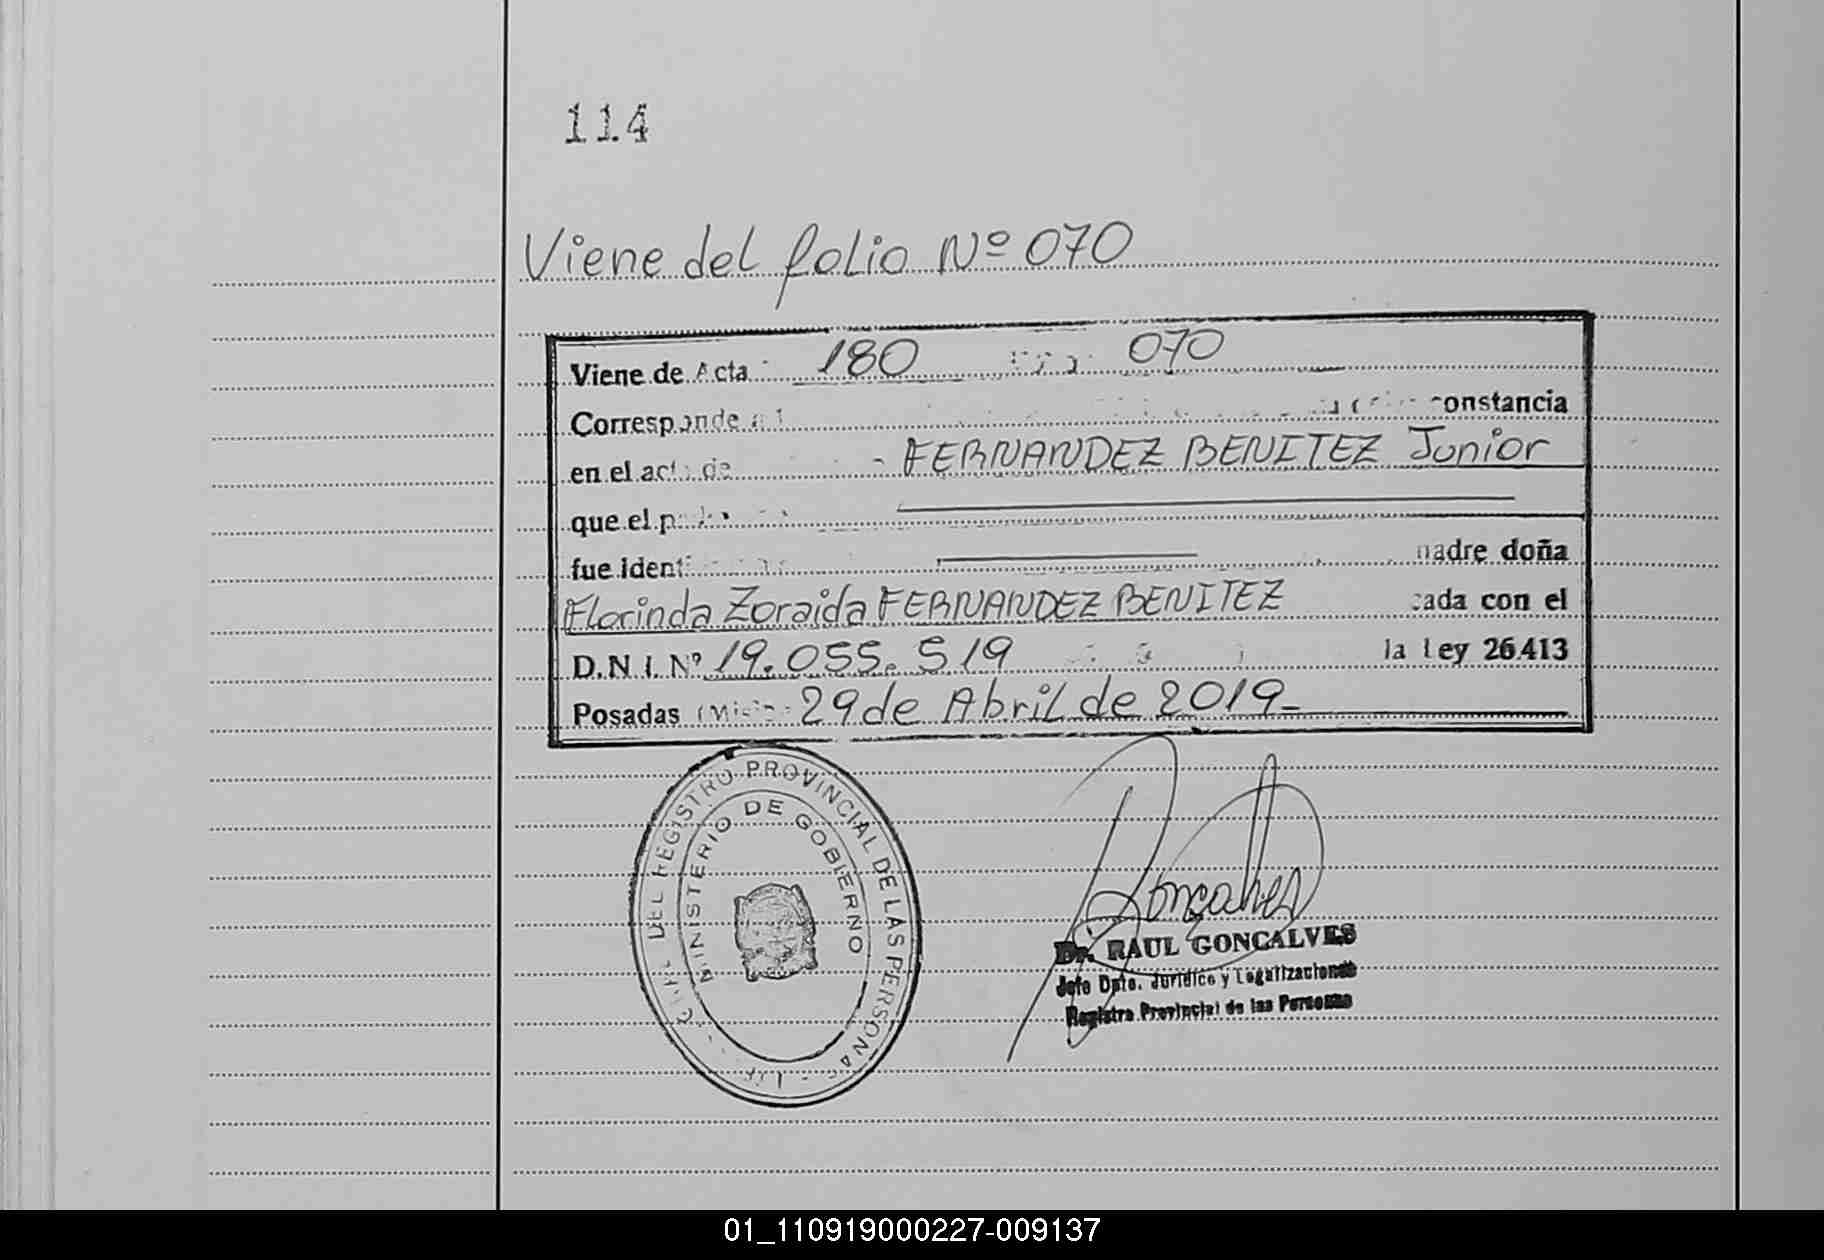 114
Viene del folio Nº 070
Viene de Acta 180 070
Corresponde constancia
en el acta de FERNANDEZ BENITEZ Junior
que el
fue madre doña
Florinda Zoraida FERNANDEZ BENITEZ con el
D.N.I. Nº 19.055.519 la Ley 26.413
Posadas 29 de Abril de 2019_
DEL REGISTRO PROVINCIAL DE LAS PERSONAS
MINISTERIO DE GOBIERNO
Goncalves
Dr. RAUL GONCALVES
Jefe Dpto. Jurídico y Legalizaciones
Registro Provincial de las Personas
01_110919000227-009137